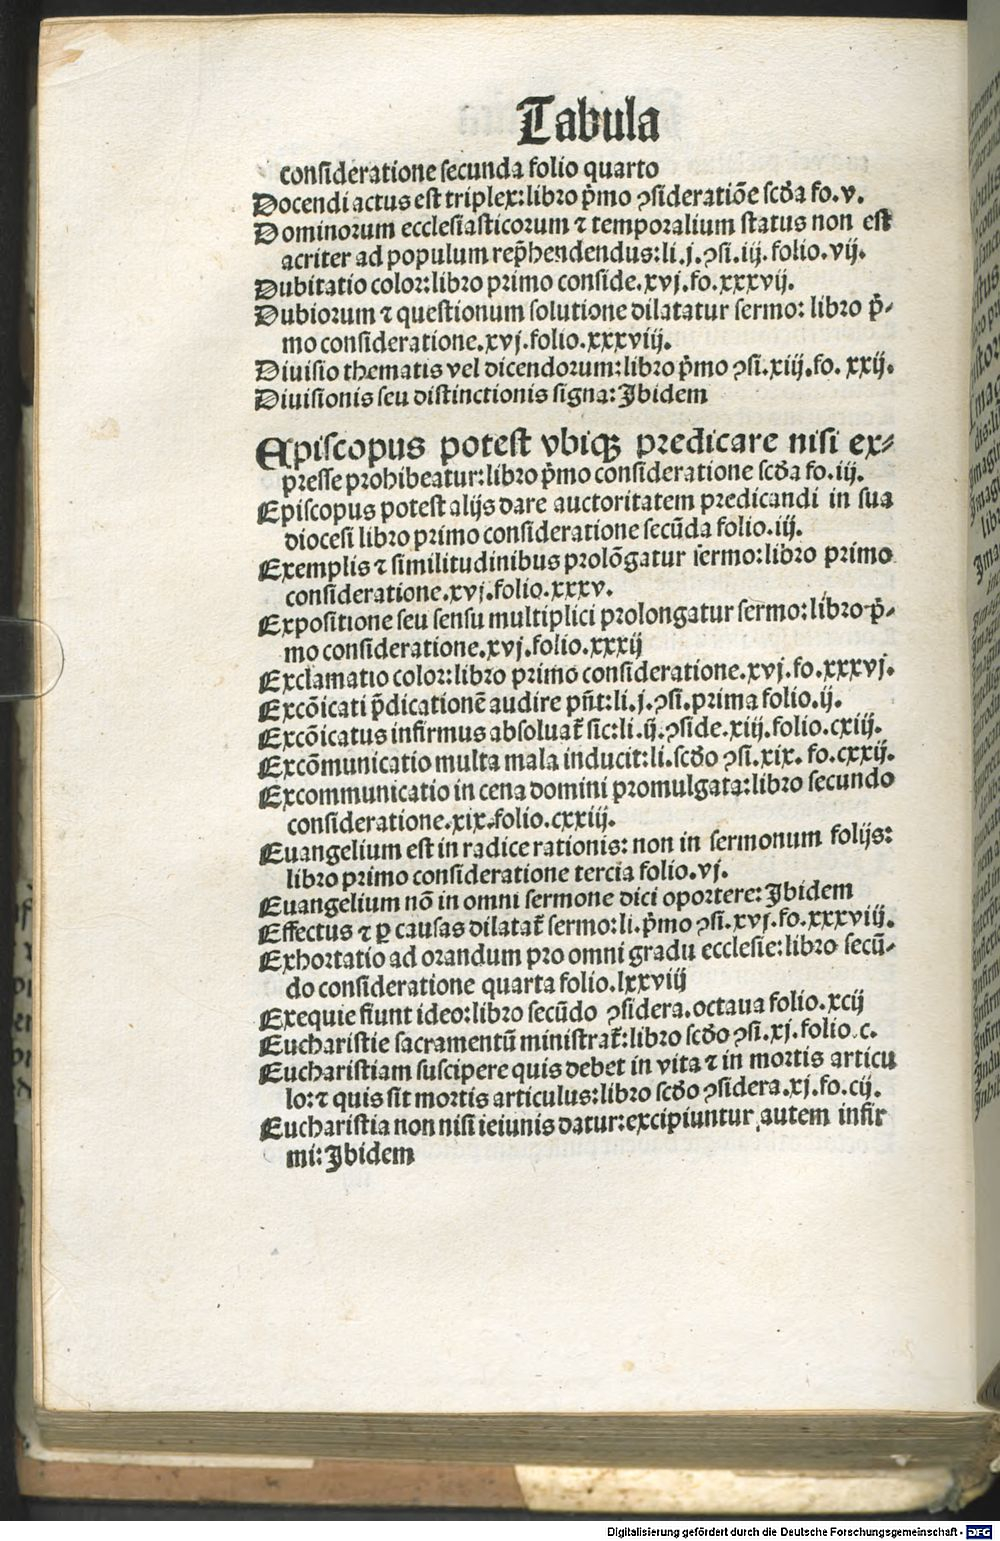 Tabula
consideratione secunda folio quarto
Docendi actus est triplex: libro p̄mo ꝯsideratiōe scd̄a fo. v.
Dominorum ecclesiasticorum ⁊ temporalium status non est
acriter ad populum rep̄hendendus: li. j. ꝯsi. iij. folio. vij.
Dubitatio color: libro primo conside. xvj. fo. xxxvij.
Dubiorum ⁊ questionum solutione dilatatur sermo: libro p̄-
mo consideratione. xvj. folio. xxxviij.
Diuisio thematis vel dicendorum: libro p̄mo ꝯsi. xiij. fo. xxij.
Diuisionis seu distinctionis signa: Jbidem
Episcopus potest vbiqꝫ predicare nisi ex-
presse prohibeatur: libro p̄mo consideratione scd̄a fo. iij.
Episcopus potest alijs dare auctoritatem predicandi in sua
diocesi libro primo consideratione secūda folio. iij.
Exemplis ⁊ similitudinibus prolōgatur sermo: libro primo
consideratione. xvj. folio. xxxv.
Expositione seu sensu multiplici prolongatur sermo: libro p̄-
mo consideratione. xvj. folio. xxxij
Exclamatio color: libro primo consideratione. xvj. fo. xxxvj.
Excōicati p̄dicationē audire pn̄t: li. j. ꝯsi. prima folio. ij.
Excōicatus infirmus absoluat̄ sic: li. ij. ꝯside. xiij. folio. cxiij.
Excōmunicatio multa mala inducit: li. scd̄o ꝯsi. xix. fo. cxxij.
Excommunicatio in cena domini promulgata: libro secundo
consideratione. xix. folio. cxxiij.
Euangelium est in radice rationis: non in sermonum folijs:
libro primo consideratione tercia folio. vj.
Euangelium nō in omni sermone dici oportere: Jbidem
Effectus ⁊ ꝑ causas dilatat̄ sermo: li. p̄mo ꝯsi. xvj. fo. xxxviij.
Exhortatio ad orandum pro omni gradu ecclesie: libro secū-
do consideratione quarta folio. lxxviij
Exequie fiunt ideo: libro secūdo ꝯsidera. octaua folio. xcij
Eucharistie sacramentū ministrat̄: libro scd̄o ꝯsi. xj. folio. c.
Eucharistiam suscipere quis debet in vita ⁊ in mortis articu
lo: ⁊ quis sit mortis articulus: libro scd̄o ꝯsidera. xj. fo. cij.
Eucharistia non nisi ieiunis datur: excipiuntur autem infir
mi: Jbidem
Digitalisierung gefördert durch die Deutsche Forschungsgemeinschaft - DFG